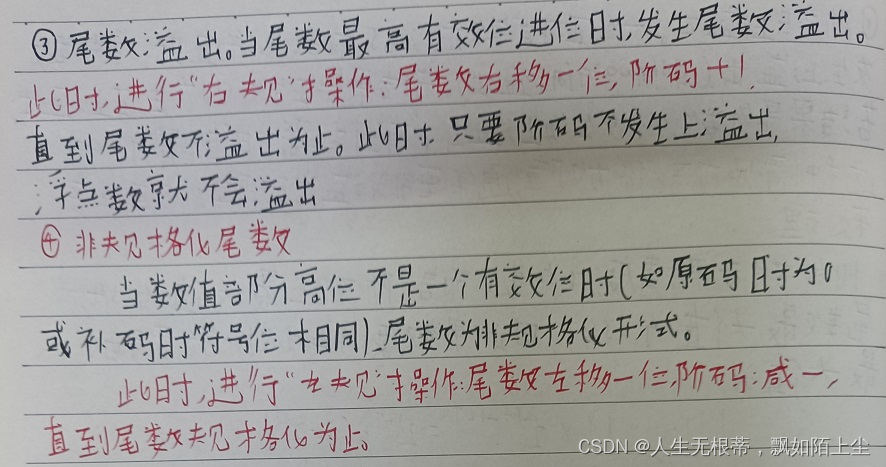 ③尾数溢出。当尾数最高有效位进位时,发生尾数溢出。
此时,进行"右规"操作:尾数右移一位,阶码+1,
直到尾数不溢出为止。此时,只要阶码不发生上溢出,
浮点数就不会溢出
④非规格化尾数
当数值部分高位不是一个有效位时(如原码时为0
或补码时符号位相同),尾数为非规格化形式。
此时,进行"左规"操作:尾数左移一位,阶码减一,
直到尾数规格化为止。
CSDN @人生无根蒂，飘如陌上尘